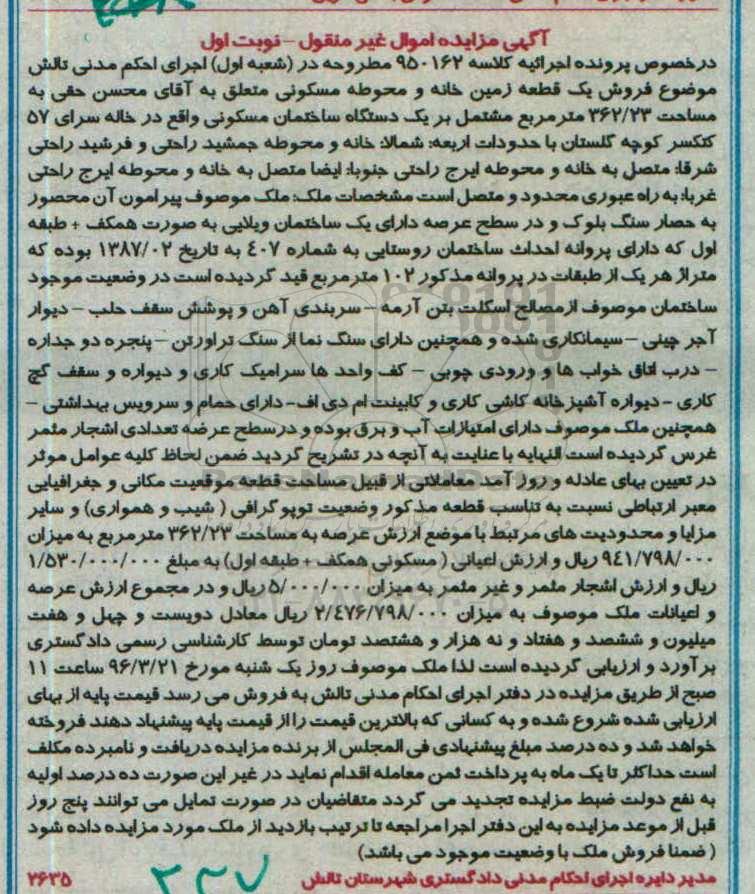 آگهی مزایده اموال غیر منقول – نوبت اول
درخصوص پرونده اجرائیه کلاسه ۹۵۰۱۶۲ مطروحه در (شعبه اول) اجرای احکم مدنی تالش
موضوع فروش یک قطعه زمین خانه و محوطه مسکونی متعلق به آقای محسن حقی به
مساحت ۳۶۲/۲۳ مترمربع مشتمل بر یک دستگاه ساختمان مسکونی واقع در خاله سرای ۵۷
کنکسر کوچه گلستان با حدودات اربعه: شمالا: خانه و محوطه جمشید راحتی و فرشید راحتی
شرقا: متصل به خانه و محوطه ایرج راحتی جنوبا: ایضا متصل به خانه و محوطه ایرج راحتی
غربا: به راه عبوری محدود و متصل است مشخصات ملک: ملک موصوف پیرامون آن محصور
به حصار سنگ بلوک و در سطح عرصه دارای یک ساختمان ویلایی به صورت همکف + طبقه
اول که دارای پروانه احداث ساختمان روستایی به شماره ۴۰۷ به تاریخ ۱۳۸۷/۰۲ بوده که
متراژ هر یک از طبقات در پروانه مذکور ۱۰۲ مترمربع قید گردیده است در وضعیت موجود
ساختمان موصوف از مصالح اسکلت بتن آرمه – سربندی آهن و پوشش سقف حلب – دیوار
آجر چینی – سیمانکاری شده و همچنین دارای سنگ نما از سنگ تراورتن – پنجره دو جداره
– درب اتاق خواب ها و ورودی چوبی – کف واحد ها سرامیک کاری و دیواره و سقف گچ
کاری – دیواره آشپزخانه کاشی کاری و کابینت ام دی اف – دارای حمام و سرویس بهداشتی –
همچنین ملک موصوف دارای امتیازات آب و برق بوده و درسطح عرضه تعدادی اشجار مثمر
غرس گردیده است النهایه با عنایت به آنچه در تشریح گردید ضمن لحاظ کلیه عوامل موثر
در تعیین بهای عادله و روز آمد معاملاتی از قبیل مساحت قطعه موقعیت مکانی و جغرافیایی
معبر ارتباطی نسبت به تناسب قطعه مذکور وضعیت توپوگرافی ( شیب و همواری) و سایر
مزایا و محدودیت های مرتبط با موضع ارزش عرصه به مساحت ۳۶۲/۲۳ مترمربع به میزان
۹۴۱/۷۹۸/۰۰۰ ریال و ارزش اعیانی ( مسکونی همکف + طبقه اول) به مبلغ ۱/۵۳۰/۰۰۰/۰۰۰
ریال و ارزش اشجار مثمر و غیر مثمر به میزان ۵/۰۰۰/۰۰۰ ریال و در مجموع ارزش عرصه
و اعیانات ملک موصوف به میزان ۲/۴۷۶/۷۹۸/۰۰۰ ریال معادل دویست و چهل و هفت
میلیون و ششصد و هفتاد و نه هزار و هشتصد تومان توسط کارشناسی رسمی دادگستری
برآورد و ارزیابی گردیده است لذا ملک موصوف روز یک شنبه مورخ ۹۶/۳/۲۱ ساعت ۱۱
صبح از طریق مزایده در دفتر اجرای احکام مدنی تالش به فروش می رسد قیمت پایه از بهای
ارزیابی شده شروع شده و به کسانی که بالاترین قیمت را از قیمت پایه پیشنهاد دهند فروخته
خواهد شد و ده درصد مبلغ پیشنهادی فی المجلس از برنده مزایده دریافت و نامبرده مکلف
است حداکثر تا یک ماه به پرداخت ثمن معامله اقدام نماید در غیر این صورت ده درصد اولیه
به نفع دولت ضبط مزایده تجدید می گردد متقاضیان در صورت تمایل می توانند پنج روز
قبل از موعد مزایده به این دفتر اجرا مراجعه تا ترتیب بازدید از ملک مورد مزایده داده شود
( ضمنا فروش ملک با وضعیت موجود می باشد)
مدیر دایره اجرای احکام مدنی دادگستری شهرستان تالش ۲۶۲۵